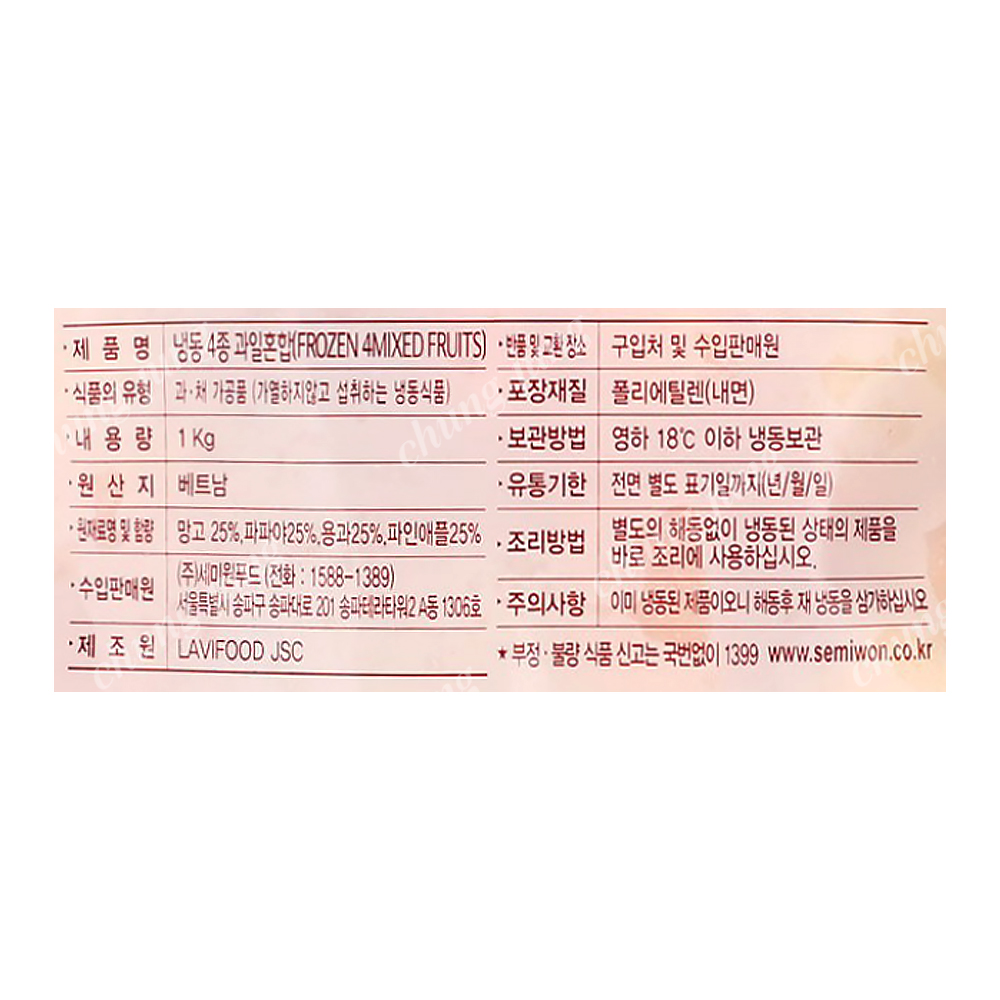 · 제 품 명 냉동 4종 과일혼합(FROZEN 4MIXED FRUITS)
· 식품의 유형 과·채 가공품 (가열하지않고 섭취하는 냉동식품)
· 내 용 량 1 Kg
· 원 산 지 베트남
· 원재료명 및 함량 망고 25%,파파야25%,용과25%,파인애플25%
· 수입판매원 (주)세미원푸드 (전화 : 1588-1389)
서울특별시 송파구 송파대로 201 송파테라타워2 A동 1306호
· 제 조 원 LAVIFOOD JSC
· 반품 및 교환 장소 구입처 및 수입판매원
· 포장재질 폴리에틸렌(내면)
· 보관방법 영하 18℃ 이하 냉동보관
· 유통기한 전면 별도 표기일까지(년/월/일)
· 조리방법 별도의 해동없이 냉동된 상태의 제품을
바로 조리에 사용하십시오.
· 주의사항 이미 냉동된 제품이오니 해동후 재 냉동을 삼가하십시오
★ 부정 · 불량 식품 신고는 국번없이 1399 www.semiwon.co.kr